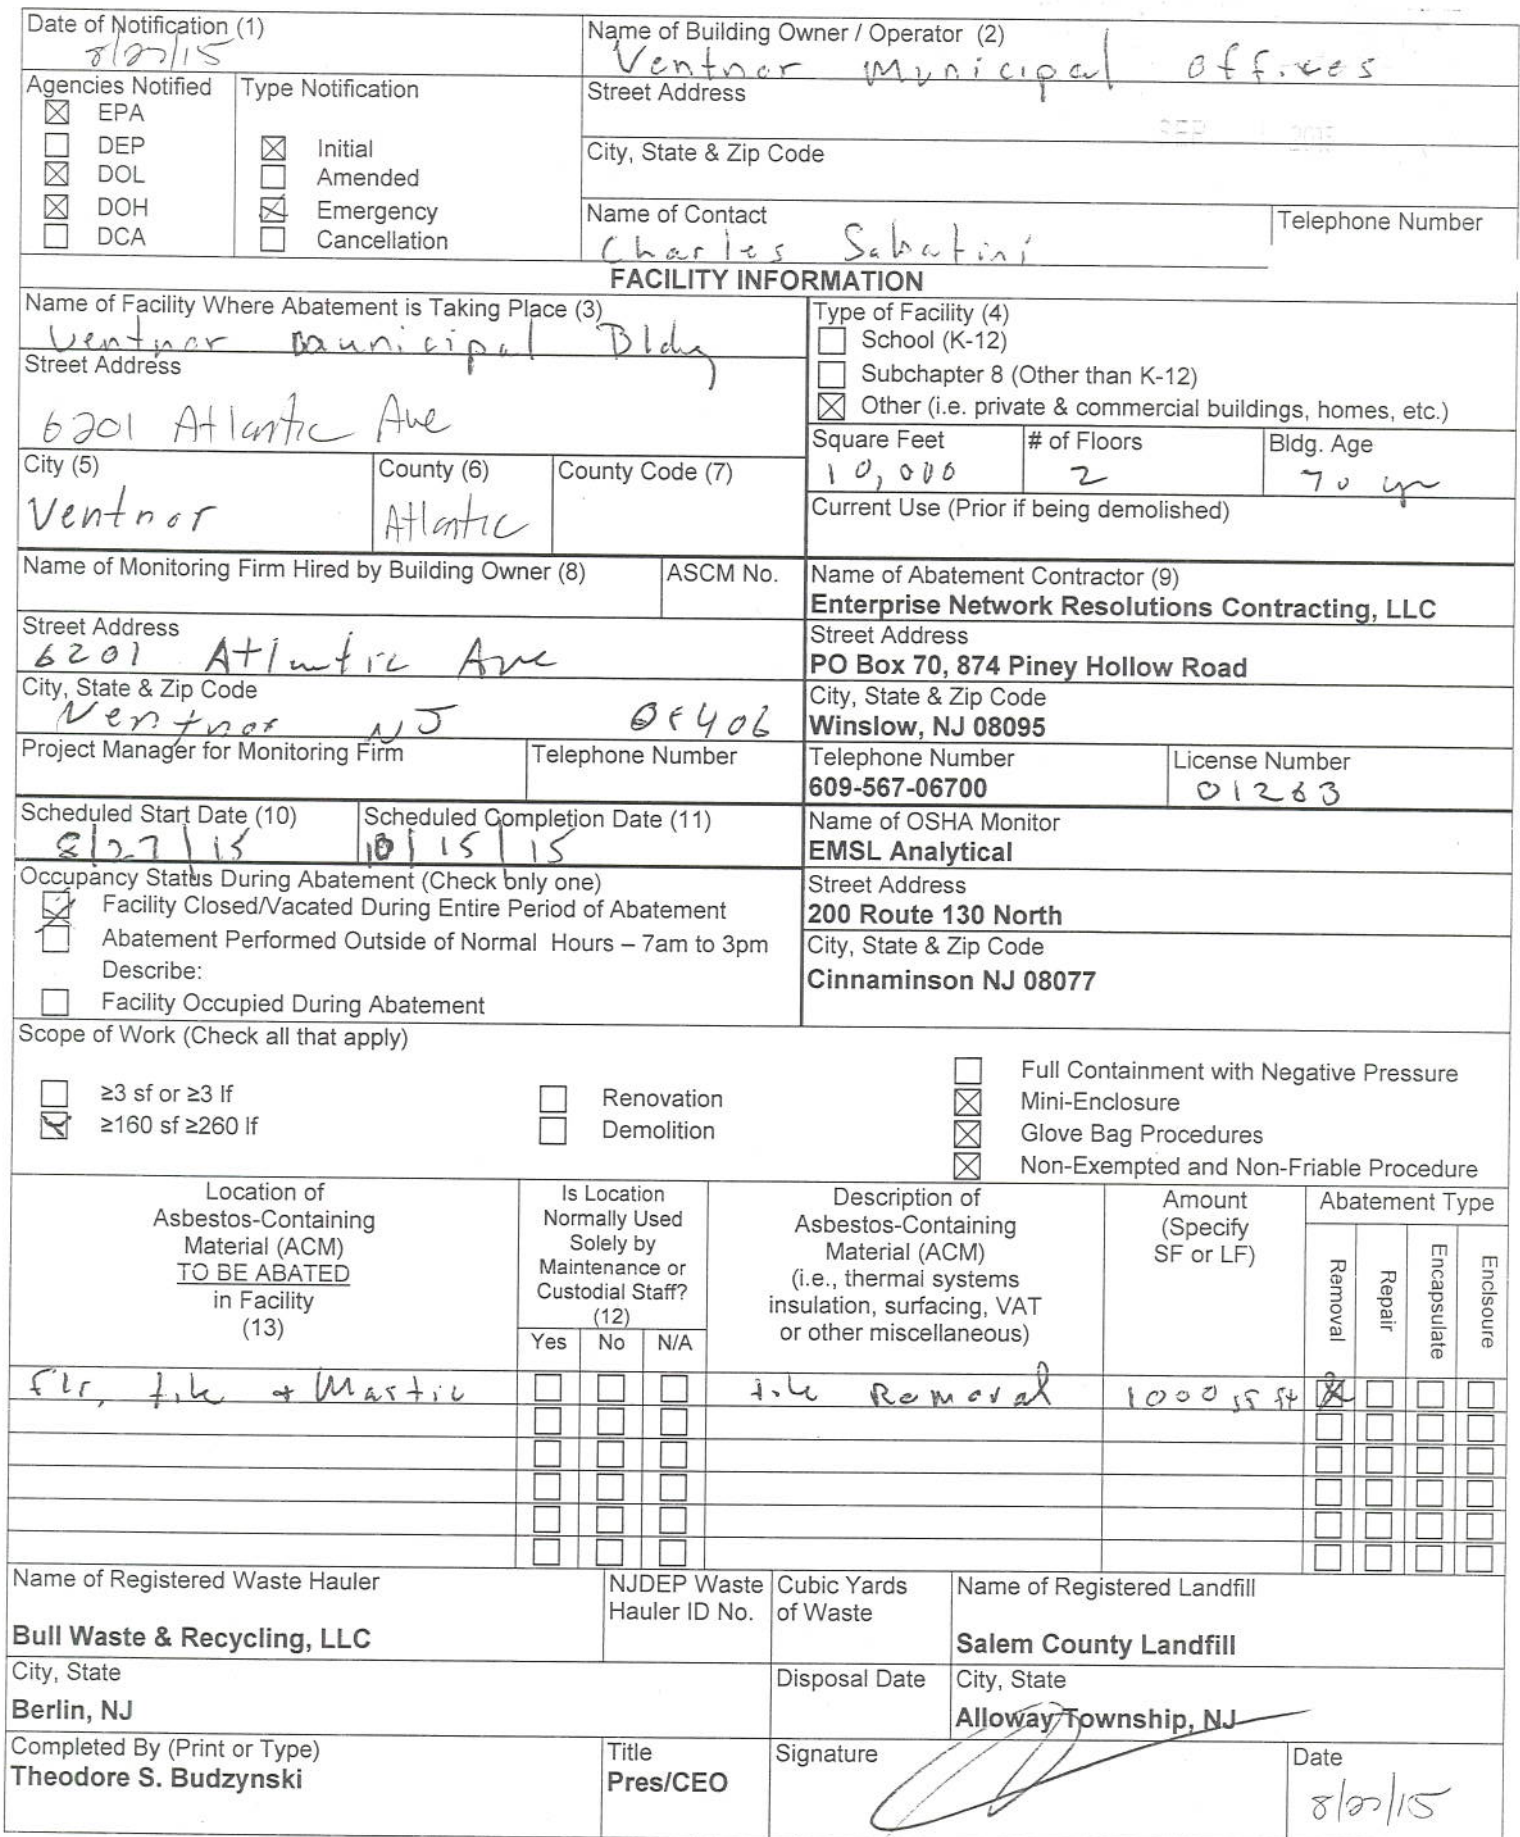 Date of Notification (1)
8/27/15
Name of Building Owner / Operator (2)
Ventnor Municipal Offices
Agencies Notified
EPA
DEP
DOL
DOH
DCA
Type Notification
Initial
Amended
Emergency
Cancellation
Street Address
City, State & Zip Code
Name of Contact
Charles Sabatini
Telephone Number
FACILITY INFORMATION
Name of Facility Where Abatement is Taking Place (3)
Ventnor Municipal Bldg
Street Address
6201 Atlantic Ave
City (5)
Ventnor
County (6)
Atlantic
County Code (7)
Type of Facility (4)
School (K-12)
Subchapter 8 (Other than K-12)
Other (i.e. private & commercial buildings, homes, etc.)
Square Feet
10,000
# of Floors
2
Bldg. Age
70 yr
Current Use (Prior if being demolished)
Name of Monitoring Firm Hired by Building Owner (8)
ASCM No.
Street Address
6201 Atlantic Ave
City, State & Zip Code
Ventnor NJ 08406
Project Manager for Monitoring Firm
Telephone Number
Name of Abatement Contractor (9)
Enterprise Network Resolutions Contracting, LLC
Street Address
PO Box 70, 874 Piney Hollow Road
City, State & Zip Code
Winslow, NJ 08095
Telephone Number
609-567-06700
License Number
01263
Scheduled Start Date (10)
8/27/15
Scheduled Completion Date (11)
10/15/15
Name of OSHA Monitor
EMSL Analytical
Occupancy Status During Abatement (Check only one)
Facility Closed/Vacated During Entire Period of Abatement
Abatement Performed Outside of Normal Hours – 7am to 3pm
Describe:
Facility Occupied During Abatement
Street Address
200 Route 130 North
City, State & Zip Code
Cinnaminson NJ 08077
Scope of Work (Check all that apply)
≥3 sf or ≥3 lf
≥160 sf ≥260 lf
Renovation
Demolition
Full Containment with Negative Pressure
Mini-Enclosure
Glove Bag Procedures
Non-Exempted and Non-Friable Procedure
Location of
Asbestos-Containing
Material (ACM)
TO BE ABATED
in Facility
(13)
Is Location
Normally Used
Solely by
Maintenance or
Custodial Staff?
(12)
Yes No N/A
Description of
Asbestos-Containing
Material (ACM)
(i.e., thermal systems
insulation, surfacing, VAT
or other miscellaneous)
Amount
(Specify
SF or LF)
Abatement Type
Removal
Repair
Encapsulate
Enclsoure
Flr, tile + Mastic
tile Removal
1000 sq ft
Name of Registered Waste Hauler
Bull Waste & Recycling, LLC
NJDEP Waste
Hauler ID No.
Cubic Yards
of Waste
Name of Registered Landfill
Salem County Landfill
City, State
Berlin, NJ
Disposal Date
City, State
Alloway Township, NJ
Completed By (Print or Type)
Theodore S. Budzynski
Title
Pres/CEO
Signature
Date
8/27/15